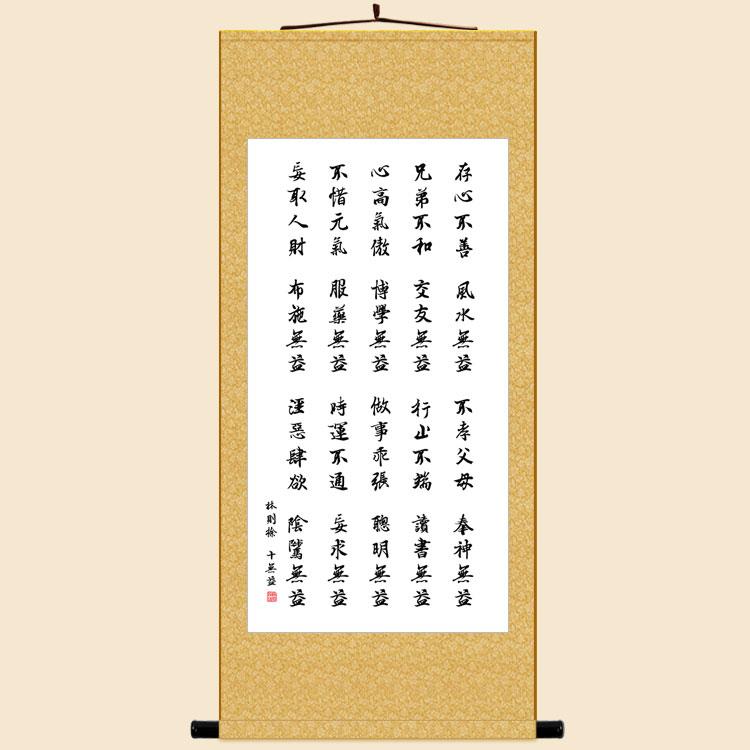 存心不善 風水無益 不孝父母 奉神無益
兄弟不和 交友無益 行止不端 讀書無益
心高氣傲 博學無益 做事乖張 聰明無益
不惜元氣 服藥無益 時運不通 妄求無益
妄取人財 布施無益 淫惡肆欲 陰騭無益
林則徐 十無益